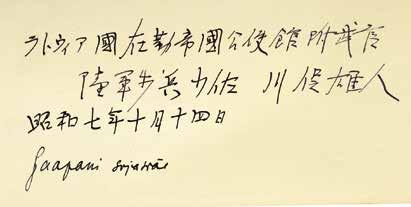 ラトヴィア國在勤帝國公使館附武官
陸軍步兵少佐 川俣雄人
昭和七年十月十四日
Jaapani sõjaväe